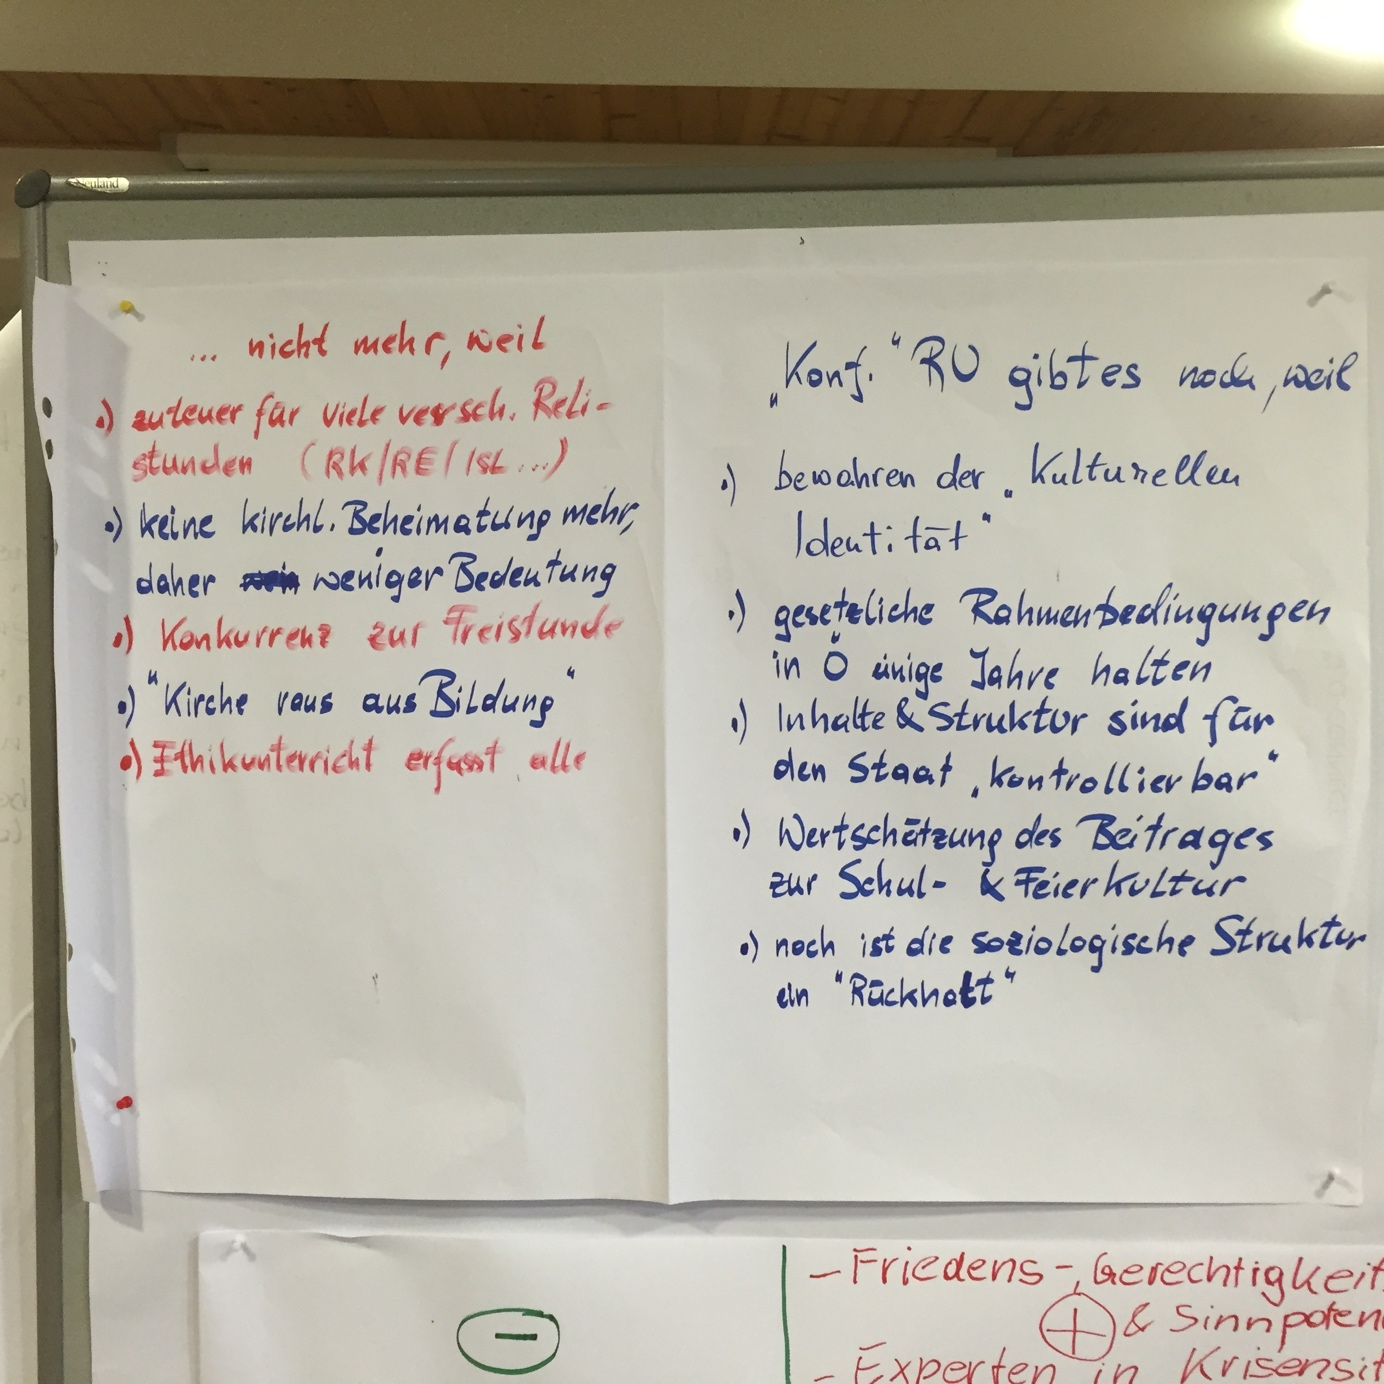 ... nicht mehr, weil
•) zu teuer für viele versch. Reli-
stunden (RK/RE/ISL ...)
•) keine kirchl. Beheimatung mehr,
daher weniger Bedeutung
•) Konkurrenz zur Freistunde
•) "Kirche raus aus Bildung"
•) Ethikunterricht erfasst alle
„Konf." RU gibt es noch, weil
•) bewahren der „Kulturellen
Identität"
•) gesetzliche Rahmenbedingungen
in Ö einige Jahre halten
•) Inhalte & Struktur sind für
den Staat „kontrollierbar"
•) Wertschätzung des Beitrages
zur Schul- & Feierkultur
•) noch ist die soziologische Struktur
ein "Rückhalt"
–
- Friedens-, Gerechtigkeit
+ & Sinnpoten
- Experten in Krisensit